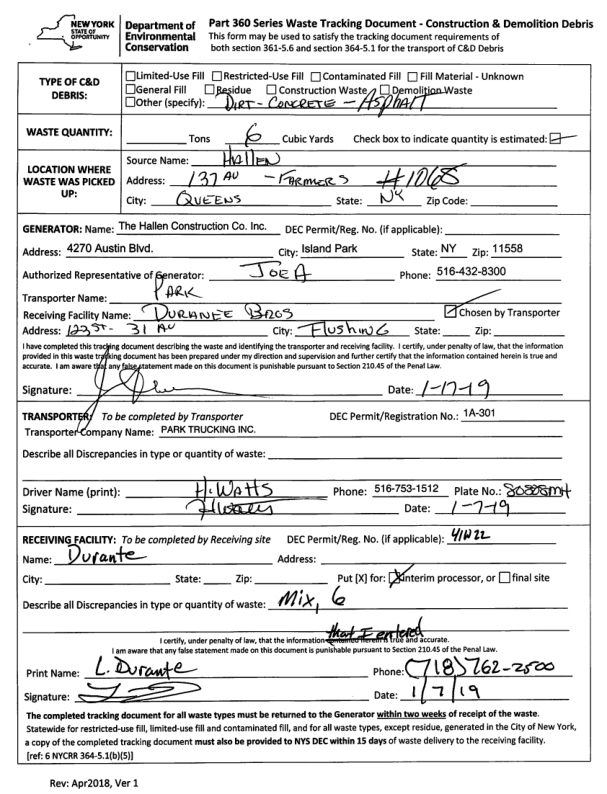 NEW YORK STATE OF OPPORTUNITY
Department of Environmental Conservation
Part 360 Series Waste Tracking Document - Construction & Demolition Debris
This form may be used to satisfy the tracking document requirements of
both section 361-5.6 and section 364-5.1 for the transport of C&D Debris
TYPE OF C&D DEBRIS:
☐Limited-Use Fill ☐Restricted-Use Fill ☐Contaminated Fill ☐Fill Material - Unknown
☐General Fill ☐Residue ☐Construction Waste ☐Demolition Waste
☐Other (specify): DIRT - CONCRETE - ASPHALT
WASTE QUANTITY: Tons 6 Cubic Yards Check box to indicate quantity is estimated:
LOCATION WHERE WASTE WAS PICKED UP:
Source Name: HALLEN
Address: 137 AU - FARMERS #1068
City: QUEENS State: NY Zip Code:
GENERATOR: Name: The Hallen Construction Co. Inc. DEC Permit/Reg. No. (if applicable):
Address: 4270 Austin Blvd. City: Island Park State: NY Zip: 11558
Authorized Representative of Generator: JOE A Phone: 516-432-8300
Transporter Name: PARK
Receiving Facility Name: DURANEE BROS ☑Chosen by Transporter
Address: 123 ST - 31 AU City: FLUSHING State: Zip:
I have completed this tracking document describing the waste and identifying the transporter and receiving facility. I certify, under penalty of law, that the information
provided in this waste tracking document has been prepared under my direction and supervision and further certify that the information contained herein is true and
accurate. I am aware that any false statement made on this document is punishable pursuant to Section 210.45 of the Penal Law.
Signature: Date: 1-17-19
TRANSPORTER: To be completed by Transporter DEC Permit/Registration No.: 1A-301
Transporter Company Name: PARK TRUCKING INC.
Describe all Discrepancies in type or quantity of waste:
Driver Name (print): H. WATTS Phone: 516-753-1512 Plate No.:
Signature: Date: 1-7-19
RECEIVING FACILITY: To be completed by Receiving site DEC Permit/Reg. No. (if applicable): 41W22
Name: Durante Address:
City: State: Zip: Put [X] for: ☒interim processor, or ☐final site
Describe all Discrepancies in type or quantity of waste: Mix, 6
I certify, under penalty of law, that the information contained herein is true and accurate. that I entered
I am aware that any false statement made on this document is punishable pursuant to Section 210.45 of the Penal Law.
Print Name: L. Durante Phone: (718) 762-2500
Signature: Date: 1/7/19
The completed tracking document for all waste types must be returned to the Generator within two weeks of receipt of the waste.
Statewide for restricted-use fill, limited-use fill and contaminated fill, and for all waste types, except residue, generated in the City of New York,
a copy of the completed tracking document must also be provided to NYS DEC within 15 days of waste delivery to the receiving facility.
[ref: 6 NYCRR 364-5.1(b)(5)]
Rev: Apr2018, Ver 1